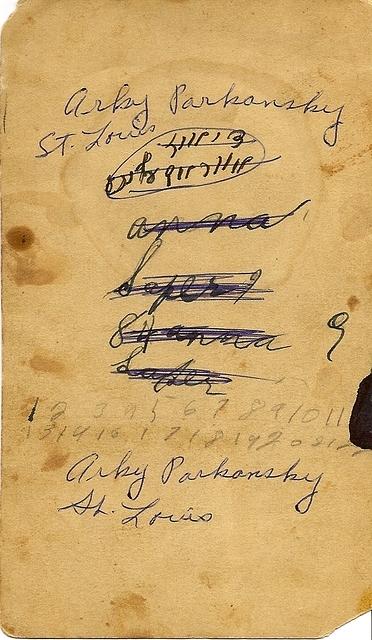 Arky Parkansky
St. Louis
anna
Soper
anna 9
Soper
1 2 3 4 5 6 7 8 9 10 11
13 14 16 17 18 19 20 21 22
Arky Parkansky
St. Louis